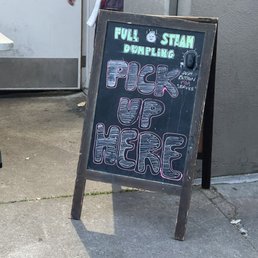 FULL STEAM
DUMPLING
PICK
UP
HERE